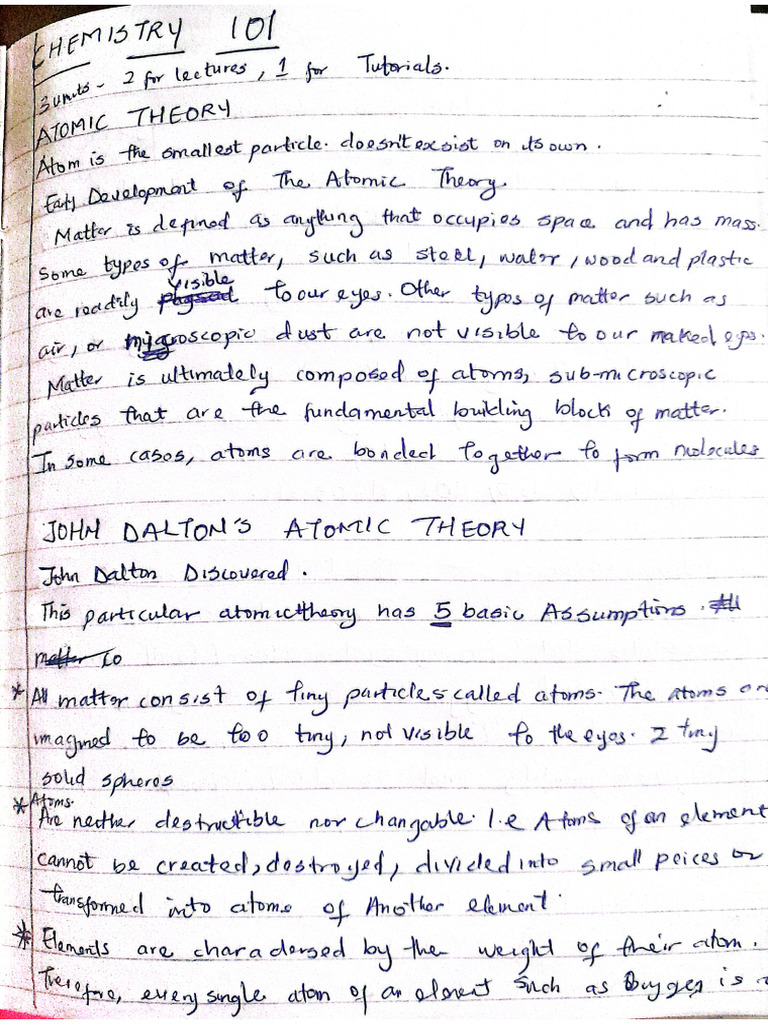 CHEMISTRY 101
3 units - 2 for lectures, 1 for Tutorials.
ATOMIC THEORY
Atom is the smallest particle. doesn't exsist on its own.
Early Development of The Atomic Theory.
Matter is defined as anything that occupies space and has mass.
Some types of matter, such as steel, water, wood and plastic
visible
are readily to our eyes. Other types of matter such as
air, or microscopic dust are not visible to our naked eyes.
Matter is ultimately composed of atoms, sub-microscopic
particles that are the fundamental building block of matter.
In some cases, atoms are bonded together to form molecules
JOHN DALTON'S ATOMIC THEORY
John Dalton Discovered.
This particular atomic theory has 5 basic Assumptions.
* All matter consist of tiny particles called atoms. The atoms are
imagined to be too tiny, not visible to the eyes. 2 tiny
solid spheres
* Atoms.
Are neither destructible nor changable. I.e Atoms of an element
cannot be created, destroyed, divided into small peices or
transformed into atoms of Another element.
* Elements are characdersed by the weight of their atom.
Therefore, every single atom of an element such as Oxygen is